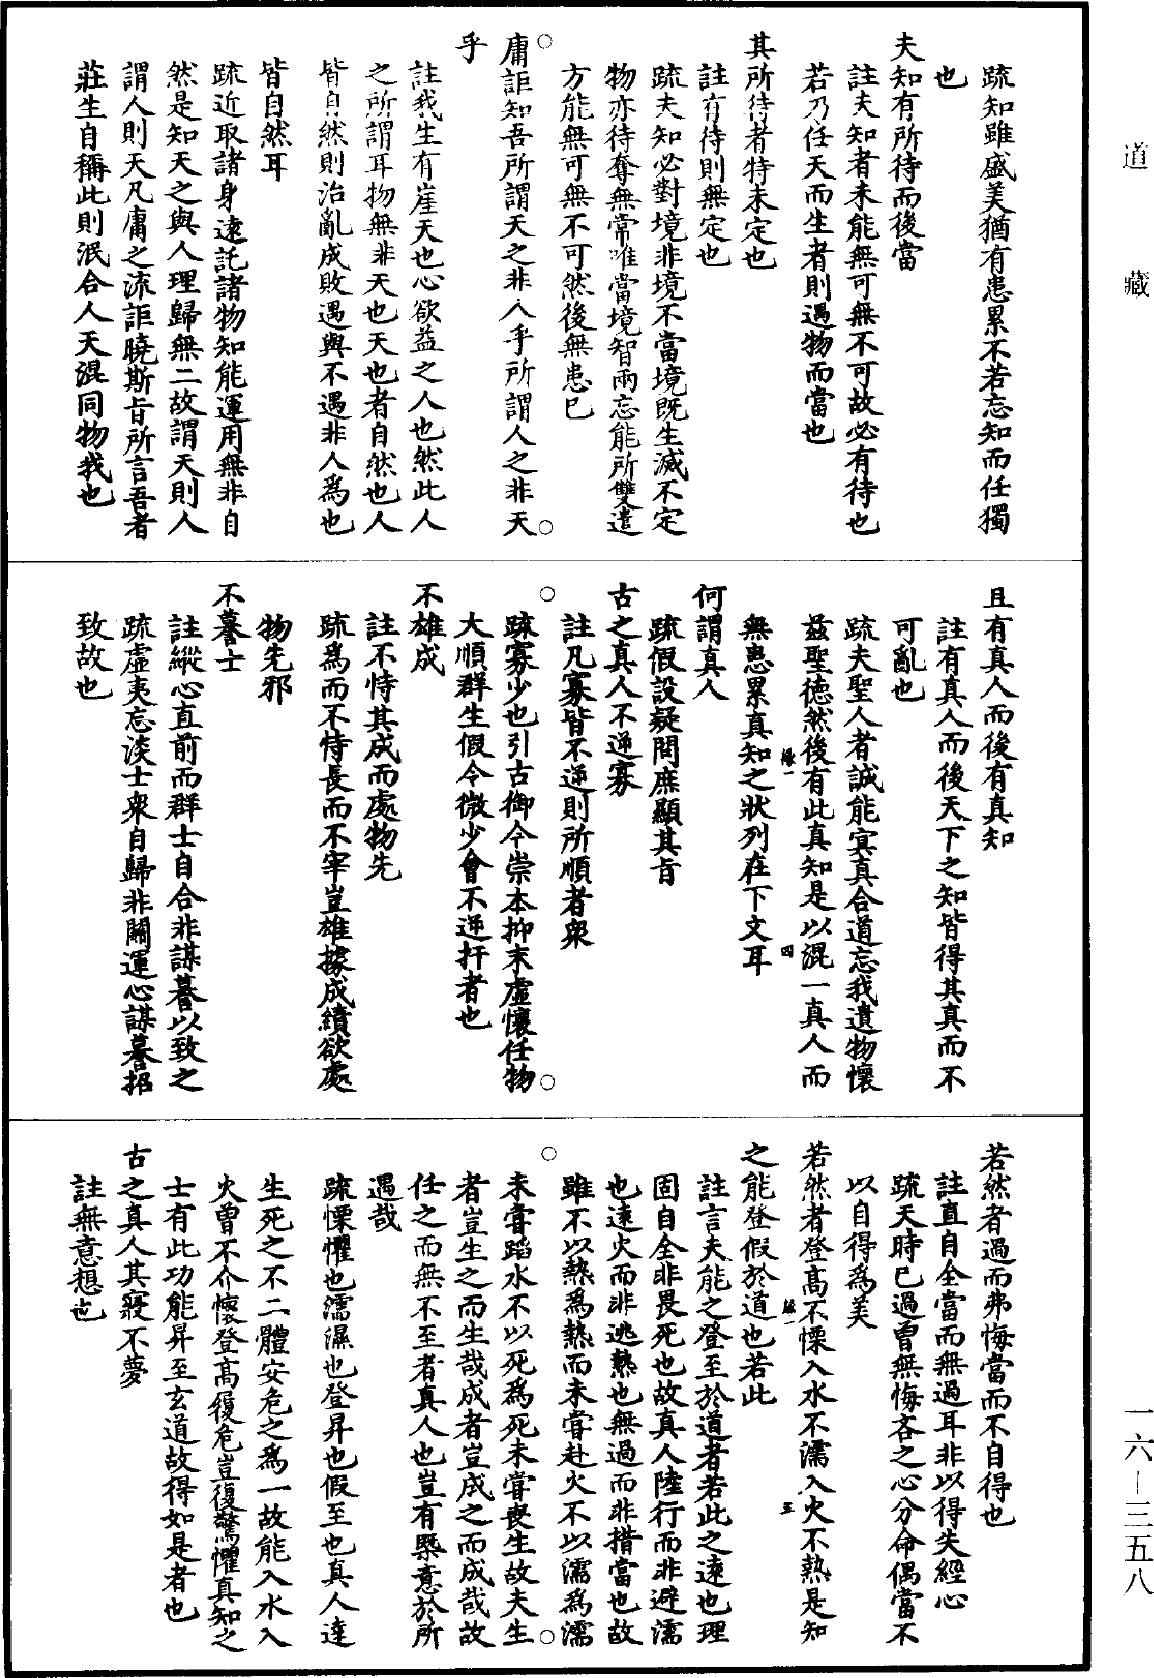 道藏
疏知雖盛美猶有患累不若忘知而任獨
也
夫知有所待而後當
註夫知者未能無可無不可故必有待也
若乃任天而生者則遇物而當也
其所待者特未定也
註有待則無定也
疏夫知必對境非境不當境既生滅不定
物亦待奪無常唯當境智兩忘能所雙遣
方能無可無不可然後無患巳
庸詎知吾所謂天之非人乎所謂人之非天
乎
註我生有崖天也心欲益之人也然此人
之所謂耳物無非天也天也者自然也人
皆自然則治亂成敗遇與不遇非人爲也
皆自然耳
疏近取諸身遠託諸物知能運用無非自
然是知天之與人理歸無二故謂天則人
謂人則天凡庸之流詎曉斯旨所言吾者
莊生自稱此則泯合人天混同物我也
且有真人而後有真知
註有真人而後天下之知皆得其真而不
可亂也
疏夫聖人者誠能冥真合道忘我遺物懷
茲聖德然後有此真知是以混一真人而
四
無患累真知之狀列在下文耳
何謂真人
疏假設疑問庶顯其旨
古之真人不逆寡
註凡寡皆不逆則所順者衆
疏寡少也引古御今崇本抑末虛懷任物
大順群生假令微少會不逆扞者也
不雄成
註不恃其成而處物先
疏爲而不恃長而不宰豈雄據成績欲處
物先邪
不謩士
註縱心直前而群士自合非謀謩以致之
疏虛夷忘淡士衆自歸非關運心謀謩招
致故也
若然者過而弗悔當而不自得也
註直自全當而無過耳非以得失經心
疏天時已過曾無悔吝之心分命偶當不
以自得爲美
若然者登高不慄入水不濡入火不熱是知
五
之能登假於道也若此
註言夫能之登至於道者若此之遠也理
固自全非畏死也故真人陸行而非避濡
也遠火而非逃熱也無過而非措當也故
雖不以熱爲熱而未嘗赴火不以濡爲濡
未嘗蹈水不以死爲死未嘗喪生故夫生
者豈生之而生哉成者豈成之而成哉故
任之而無不至者真人也豈有槩意於所
遇哉
疏慄懼也濡濕也登昇也假至也真人達
生死之不二體安危之爲一故能入水入
火曾不介懷登高履危豈復驚懼真知之
士有此功能昇至玄道故得如是者也
古之真人其寢不夢
註無意想也
一六—三五八